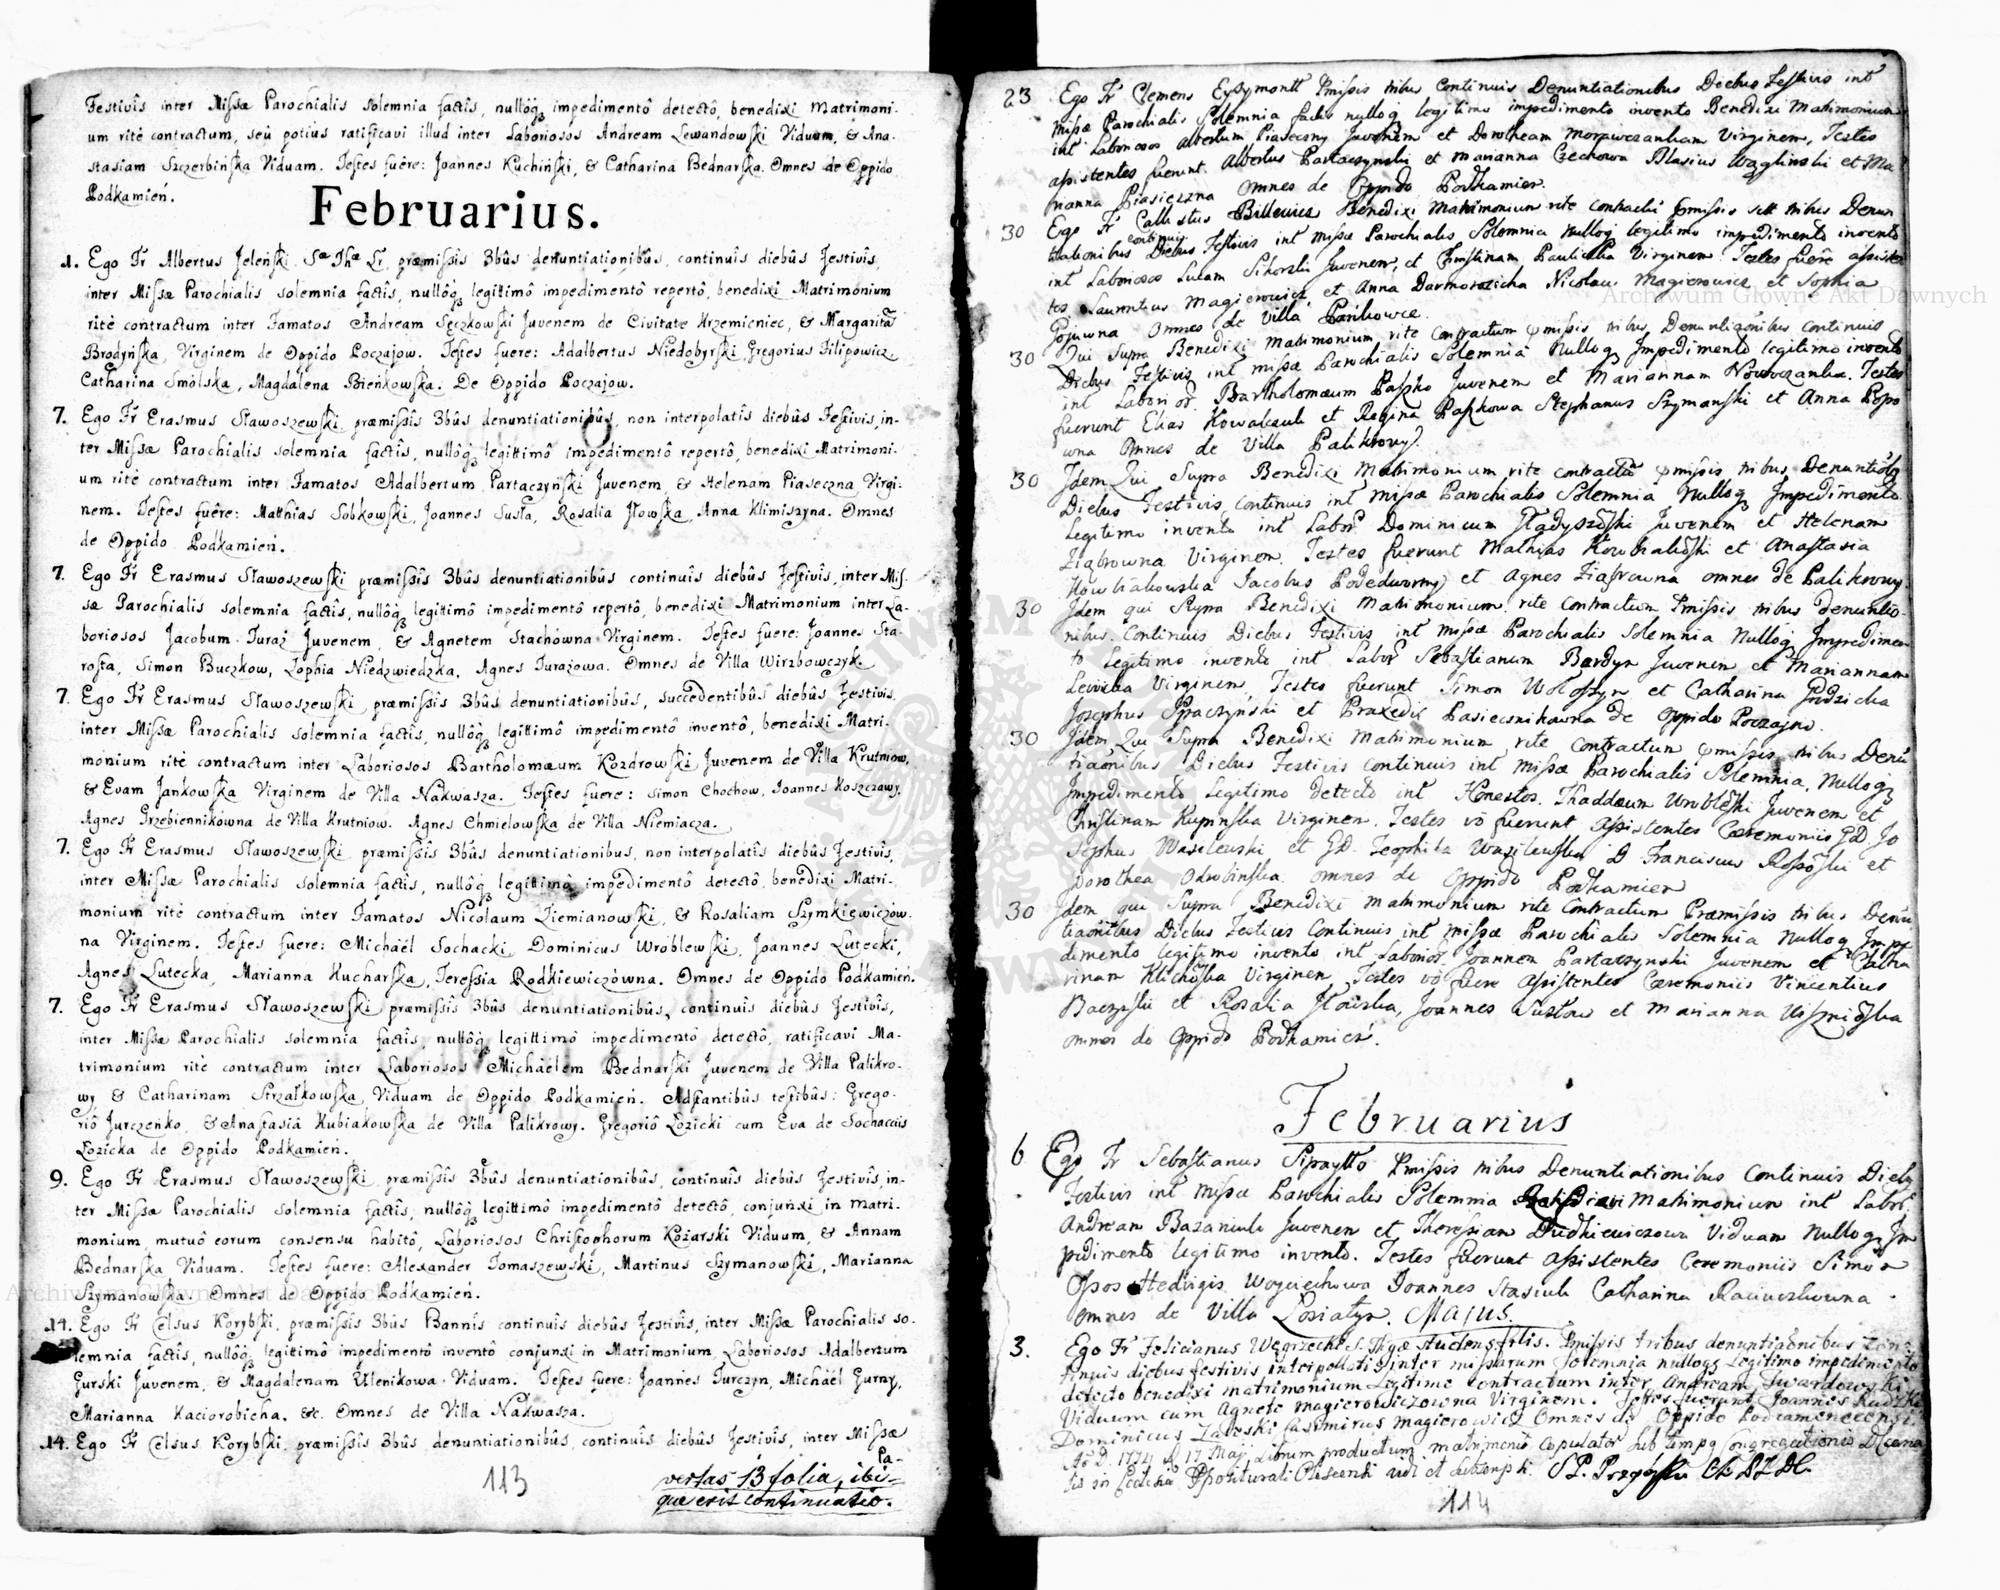 Festivîs inter Missæ Parochialis solemnia factîs, nullôq; impedimentô detectô, benedixi Matrimoni-
um ritè contractum, seù potiùs ratificavi illud inter Laboriosos Andream Lewandowski Viduum, & Ana-
stasiam Szczerbińska Viduam. Testes fuêre: Joannes Kuchiński, & Catharina Bednarska. Omnes de Oppido
Podkamień.
Februarius.
1. Ego Fr Albertus Jeleński Sæ Thæ Lr, præmissîs 3bûs denuntiationibûs, continuîs diebûs Festivîs,
inter Missæ Parochialis solemnia factîs, nullôq; legittimô impedimentô repertô, benedixi Matrimonium
ritè contractum inter Famatos Andream Sęczkowski Juvenem de Civitate Krzemieniec, & Margaritã
Brodyńska, Virginem de Oppido Poczajow. Testes fuere: Adalbertus Niedobyrski, Gregorius Filipowicz,
Catharina Smolska, Magdalena Bieńkowska. De Oppido Poczajow.
7. Ego Fr Erasmus Sławoszewski præmissîs 3bûs denuntiationibûs, non interpolatîs diebûs Festivîs, in-
ter Missæ Parochialis solemnia factîs, nullôq; legittimô impedimentô repertô, benedixi Matrimoni-
um ritè contractum inter Famatos Adalbertum Partaczyński Juvenem, & Helenam Piaseczna Virgi-
nem. Testes fuêre: Matthias Sobkowski, Joannes Susła, Rosalia Jłowska, Anna Klimiszyna. Omnes
de Oppido Podkamień.
7. Ego Fr Erasmus Sławoszewski præmissîs 3bûs denuntiationibûs continuîs diebûs Festivîs, inter Mis-
sæ Parochialis solemnia factîs, nullôq; legittimô impedimentô repertô, benedixi Matrimonium inter La-
boriosos Jacobum Turaz Juvenem, & Agnetem Stachowna Virginem. Testes fuere: Joannes Sta-
rosta, Simon Buczkow, Zophia Niedzwiedzka, Agnes Turażowa. Omnes de Villa Wirzbowczyk.
7. Ego Fr Erasmus Sławoszewski præmissîs 3bûs denuntiationibûs, succedentibûs diebûs Festivîs,
inter Missæ Parochialis solemnia factîs, nullôq; legittimô impedimentô inventô, benedixi Matri-
monium ritè contractum inter Laboriosos Bartholomæum Kozdrowski Juvenem de Villa Krutniow,
& Evam Jankowska Virginem de Villa Nakwasza. Testes fuere: Simon Chochow, Joannes Koszczawy,
Agnes Grzebiennikowna de Villa Krutniow. Agnes Chmielowska de Villa Niemiacza.
7. Ego Fr Erasmus Sławoszewski, præmissîs 3bûs denuntiationibus, non interpolatîs diebûs Festivîs,
inter Missæ Parochialis solemnia factîs, nullôq; legittimô impedimentô detectô, benedixi Matri-
monium ritè contractum inter Famatos Nicolaum Ziemianowski, & Rosaliam Szymkiewiczow-
na Virginem. Testes fuere: Michaël Sochacki, Dominicus Wroblewski, Joannes Lutecki,
Agnes Lutecka, Marianna Kucharska, Teressia Rodkiewiczòwna. Omnes de Oppido Podkamień.
7. Ego Fr Erasmus Sławoszewski præmissîs 3bûs denuntiationibûs, continuîs diebûs Festivîs,
inter Missæ Parochialis solemnia factîs, nullôq; legittimô impedimentô detectô, ratificavi Ma-
trimonium ritè contractum inter Laboriosos Michaëlem Bednarski Juvenem de Villa Palikro-
wy & Catharinam Strzałkowska, Viduam de Oppido Podkamień. Adstantibûs testibûs: Grego-
riô Jurczeńko, & Anastasiâ Kubiakowska de Villa Palikrowy. Gregoriô Łozicki cum Eva de Sochaccîs
Łozicka de Oppido Podkamień.
9. Ego Fr Erasmus Sławoszewski, præmissîs 3bûs denuntiationibûs, continuîs diebûs Festivîs, in-
ter Missæ Parochialis solemnia factîs, nullôq; legittimô impedimentô detectô, conjunxi in Matri-
monium, mutuô eorum consensu habitô, Laboriosos Christophorum Kożarski Viduum, & Annam
Bednarska Viduam. Testes fuere: Alexander Tomaszewski, Martinus Szymanowski, Marianna
Szymanowska. Omnes de Oppido Podkamień.
14. Ego Fr Celsus Korybski, præmissîs 3bûs Bannîs continuîs diebûs Festivîs, inter Missæ Parochialis so-
lemnia factîs, nullôq; legittimô impedimentô inventô conjunxi in Matrimonium, Laboriosos Adalbertum
Gurski Juvenem, & Magdalenam Ulenikowa Viduam. Testes fuere: Joannes Turczyn, Michaël Gurny,
Marianna Kaciorobicha, &c. Omnes de Villa Nakwasza.
14. Ego Fr Celsus Korybski, præmissîs 3bûs denuntiationibûs, continuîs diebûs Festivîs, inter Missæ
Pa-
vertas 13 folia, ibi-
que eris continuatio.
113
23 Ego Fr Clemens Eysymontt Præmissis tribus Continuis Denuntiationibus Diebus Festivis int
Missæ Parochialis Solemnia factis nulloq legitimo impedimento invento Benedixi Matrimonium
int Laboriosos Albertum Piaseczny Juvenem et Dorotheam Morawczankam Virginem, Testes
assistentes fuerunt. Albertus Partaczynski et Marianna Czechowa Blasius Waglinski et Ma
rianna Piasieczna Omnes de Oppido Podkamien.
30 Ego Fr Callistus Billewicz Benedixi Matrimonium rite contractũ pmissis tribus Denun
tiationibus continuis Diebus Festivis int Missæ Parochialis Solemnia Nulloq legitimo impedimento invento
int Laboriosos Lucam Sikorski Juvenem, et Christinam Pauticka Virginem. Testes fuere assisten
tes Laurentius Magierowicz, et Anna Darmoraicha Nicolaus Magierowicz et Sophia
Gojuwna Omnes de Villa Pańkowce.
30 Qui Supra Benedixi Matrimonium rite Contractum pmissis tribus Denuntiaõnibus continuis
Diebus Festivis int Missæ Parochialis Solemnia Nulloq Impedimento legitimo invento
int Labori os. Bartholomæum Paszko Juvenem et Mariannam Nowoczanka. Testes
fuerunt Elias Kowalczuk et Regina Paszkowa Stephanus Szymanski et Anna Popo
wna Omnes de Villa Palikrowy.
30 Jdem Qui Supra Benedixi Matrimonium rite contractũ pmissis tribus Denuntiõbq
Diebus Festivis, continuis int Missæ Parochialis Solemnia Nulloq Impedimento
legitimo invento int Labor Dominicum Gładyszõski Juvenem et Helenam
Ziąbrowna Virginem. Testes fuerunt Mathias Kowbralõski et Anastasia
Jacobus Podedworny et Agnes Ziabrowna omnes de Palikrowy.
30 Jdem qui Supra Benedixi Matrimonium rite Contractum Pmissis tribus denuntio-
nibus Continuis Diebus Festivis int Missæ Parochialis Solemnia Nulloq Impedimen
to Legitimo invento int Labor Sebastianum Bardyn Juvenem et Mariannam
Lewicka Virginem, Testes fuerunt Simon Wołoszyn et Catharina Gudzicka
Josephus Spaczynski et Praxedis Pasiecznikowna de Oppido Poczajno.
30 Jdem Qui Supra Benedixi Matrimonium rite Contractum pmissis tribus Denũ
tiaonibus Diebus Festivis Continuis int Missæ Parochialis Solemnia, Nulloq
Impedimento Legitimo detecto int Honestos. Thaddæum Wroblõski Juvenem et
Christinam Kupinska Virginem. Testes võ fuerunt Assistentes Cæremoniis GD Jo
sephus Wasilewski et GD. Teophila Wasilewska D Franciscus Rossõski et
Dorothea Omnes de Oppido Podkamień
30 Jdem qui Supra Benedixi Matrimonium rite Contractum Præmissis tribus Denũ
tiaonibus Diebus Festivis Continuis int Missæ Parochialis Solemnia Nulloq Imp
dimento legitimo invento int Labõrios. Joannem Partaczynski Juvenem et Catha
rinam Klichõska Virginem, Testes võ fuere Assistentes Cæremoniis Vincentius
Baczyski et Rosalia Jłowska, Joannes Susłow et Marianna
omnes de Oppido Podkamień.
Februarius
6 Ego Fr Sebastianus Sipaytto Pmissis tribus Denuntiationibus Continuis Dieb
Festivis int Missæ Parochialis Solemnia Matrimonium int Labor
Andream Bazaniuk Juvenem et Theressiam Dudkiewiczowa Viduam Nulloq Im
pedimento legitimo invento. Testes fuerunt Assistentes Ceremoniis Simon
Opos Hedvigis Woyciechowa Joannes Stasiuk Catharina
Omnes de Villa Łosiatyn. Majus.
3. Ego Fr Felicianus Węgrzecki S. Thgæ Pmissis tribus denuntiaõnibus Con-
tinuis diebus festivis intcipollatis inter missarum solemnia nulloq; Legitimo impedimento
detecto benedixi matrimonium Legitime contractum inter Andream Twardowski
Viduum cum Agnete magierowiczowna Virginem. Testes fuerunt Joannes Rudzki
Dominicus Zaleski Casimirus magierowicz Omnes de Oppido Podcamenecensi.
Aõ D. 1774 d 17 Maij Librum productum matrimonio Copulator Sub tempq Congregationis Decana
lis in Ecclesia Ppositurali Olescensi vidi et subscripsi.
114
Archiwum Główne Akt Dawnych
Archiwum Główne Akt Dawnych